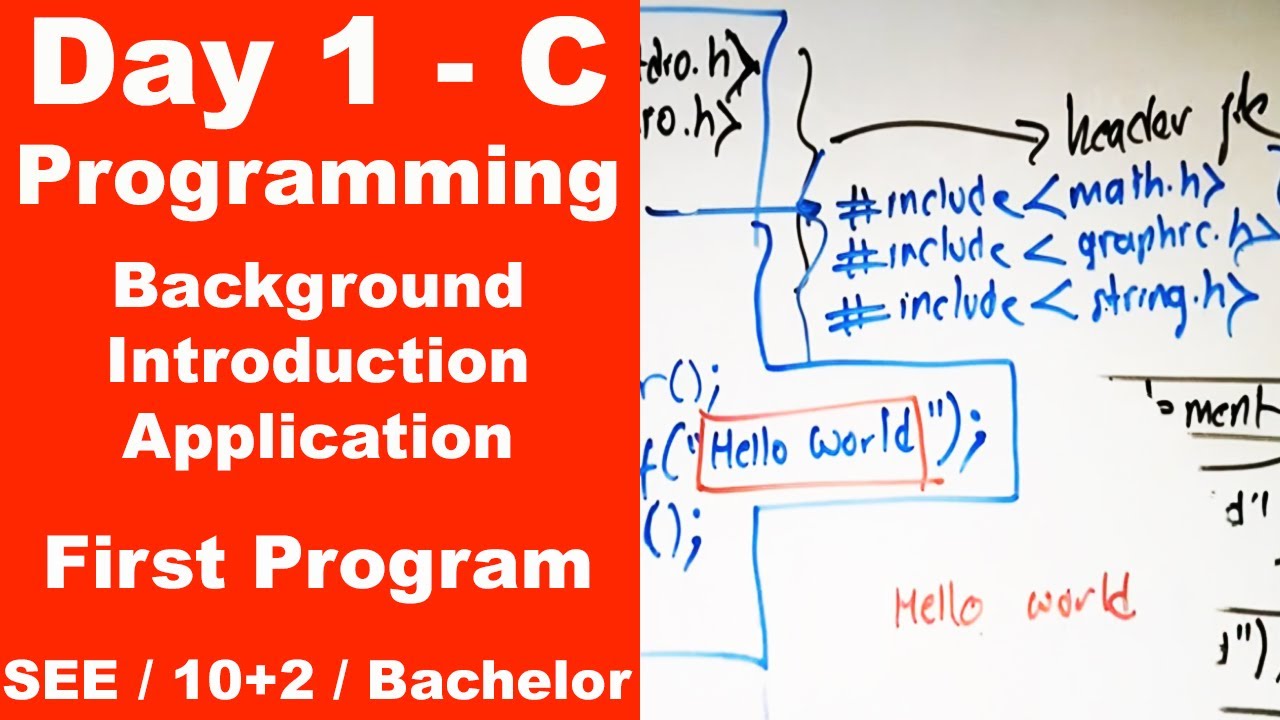 Day 1 - C
Programming
Background
Introduction
Application
First Program
SEE / 10+2 / Bachelor
dio.h>
io.h>
header file
#include <math.h>
#include < graphic.h>
#include < string.h>
r();
f("Hello world");
();
Hello world
ment
");